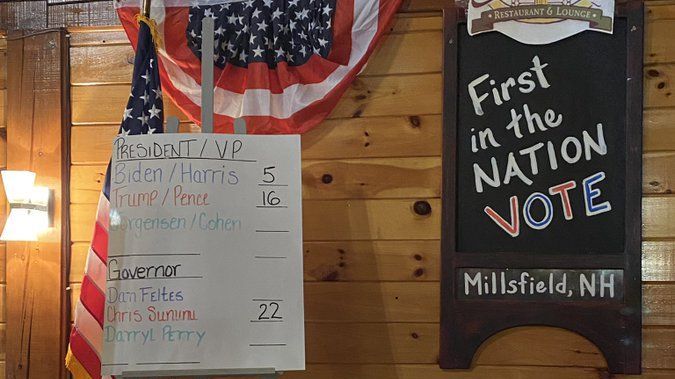 PRESIDENT/VP
Biden/Harris 5
Trump/Pence 16
Jorgensen/Cohen
Governor
Dan Feltes
Chris Sununu 22
Darryl Perry
RESTAURANT & LOUNGE
First
in the
NATION
VOTE
Millsfield, NH